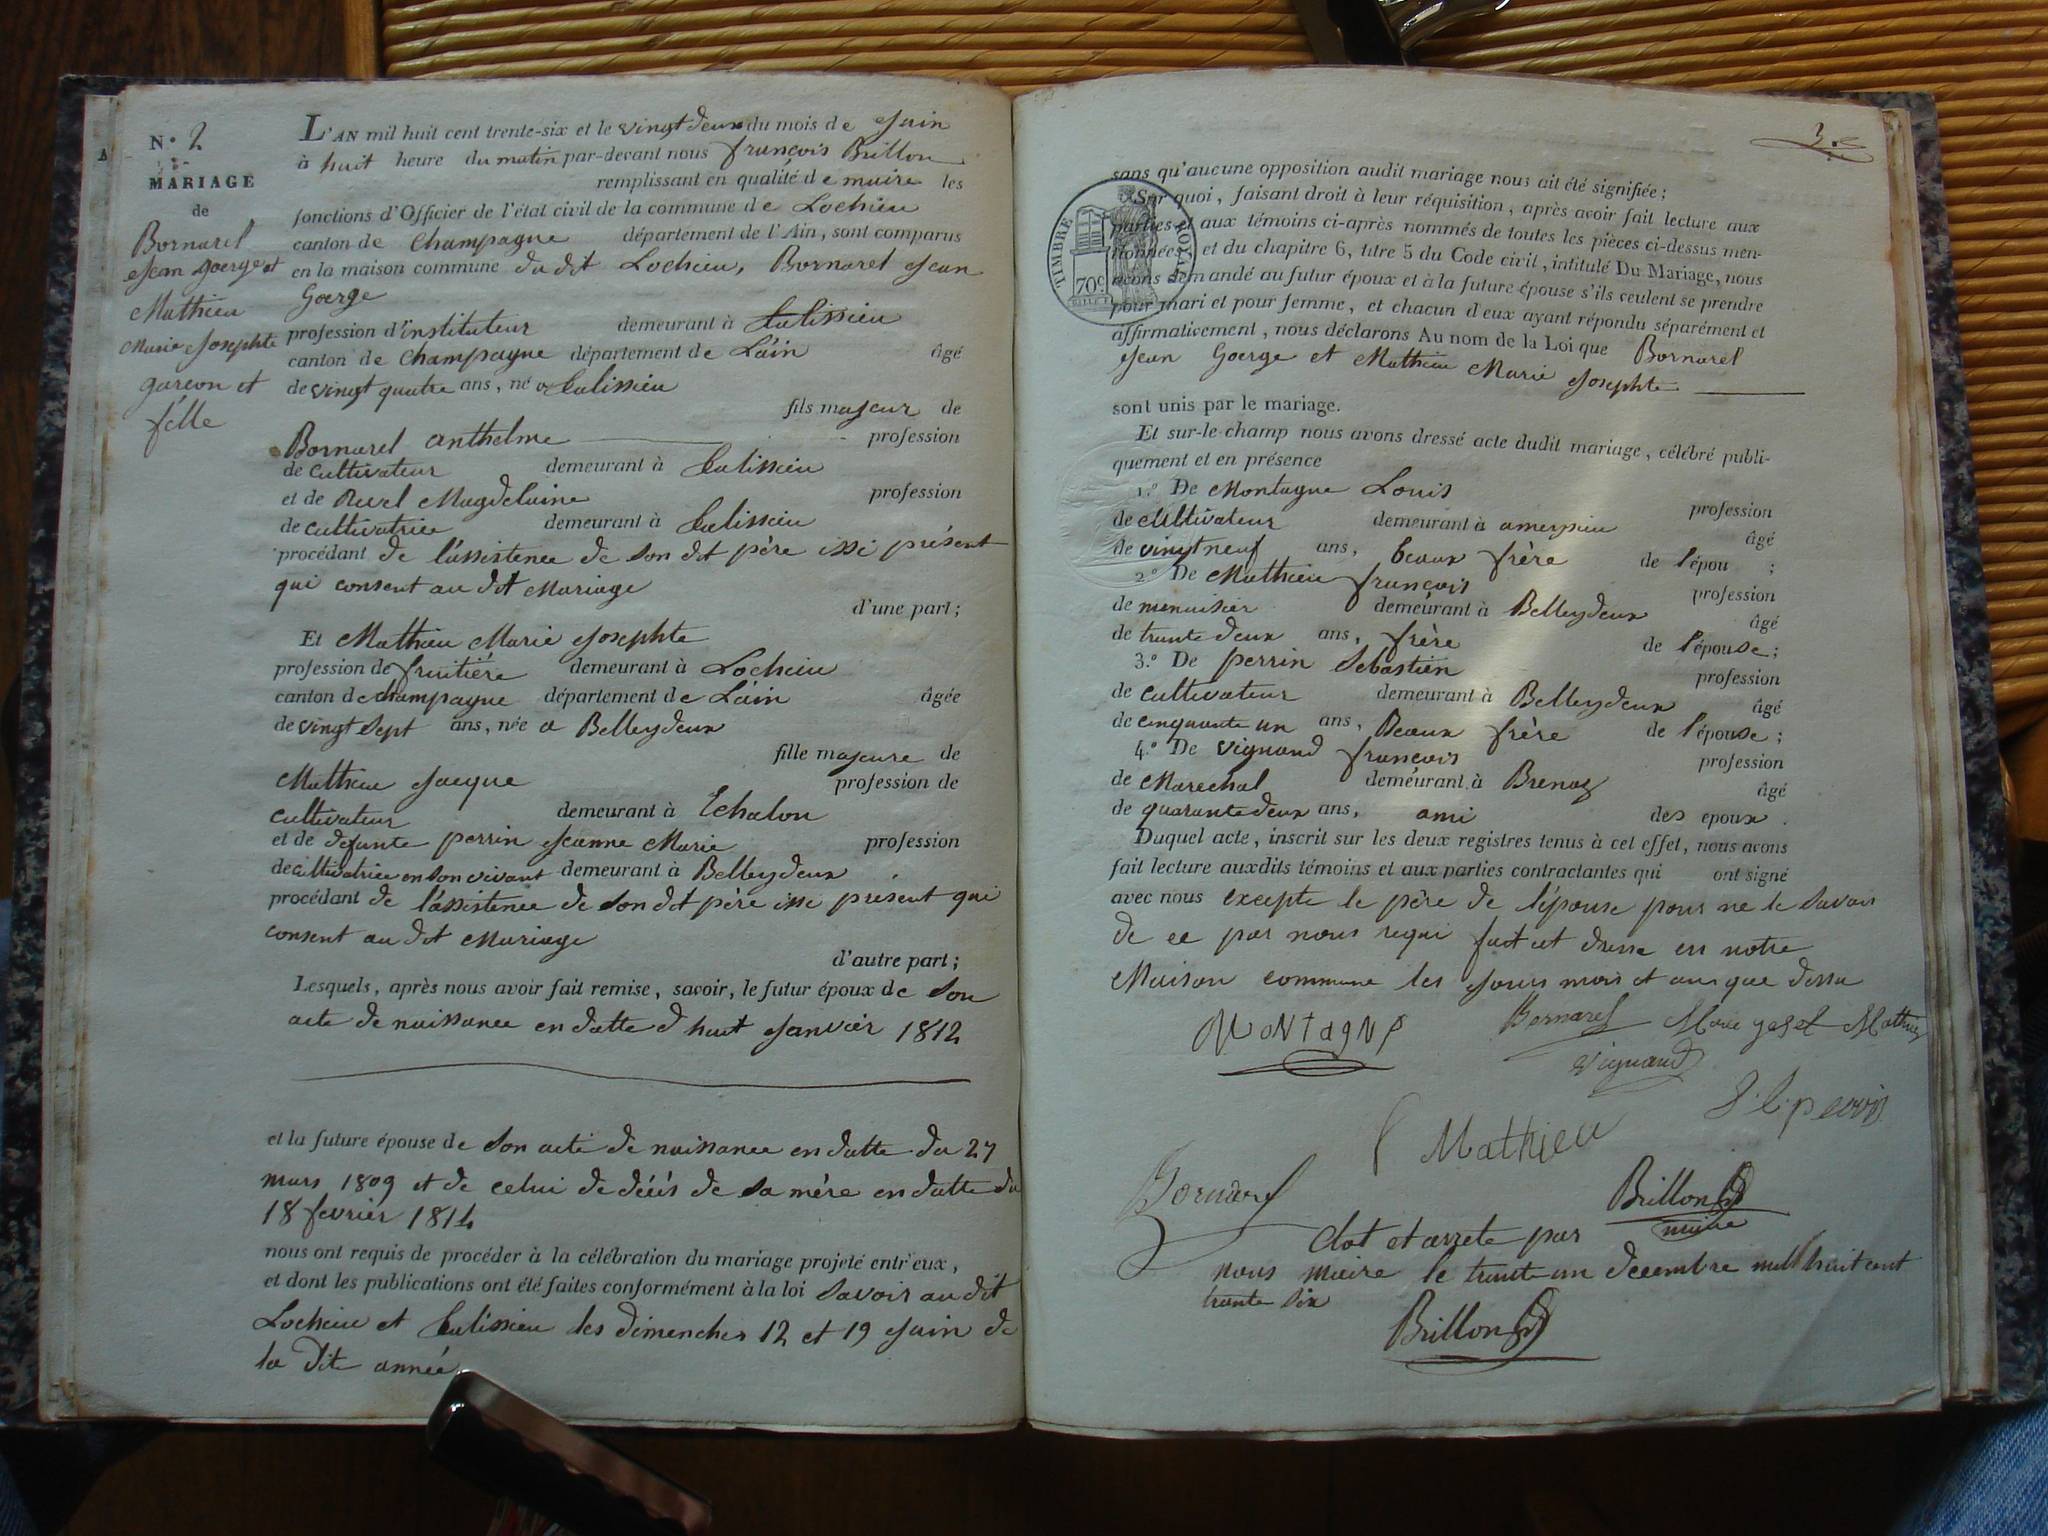 N.° 2
MARIAGE
de
Bornarel
Jean goerge et
Mathieu
Marie Josephte
garcon et
fille
L'AN mil huit cent trente-six et le vingt deux du mois de Juin
à huit heure du matin par-devant nous françois Brillon
remplissant en qualité de maire les
fonctions d'Officier de l'état civil de la commune de Lochieu
canton de Champagne département de l'Ain, sont comparus
en la maison commune du dit Lochieu, Bornarel Jean
Goerge
profession d'instituteur demeurant à Sulissieu
canton de Champagne département de Láin âgé
de vingt quatre ans, né a Sulissieu
fils majeur de
Bornarel anthelme profession
de cultivateur demeurant à Sulissieu
et de Revel Magdelaine profession
de cultivatrice demeurant à Sulissieu
procédant de l'assistence de son dit père issi présent
qui consent au dit Mariage
d'une part;
Et Mathieu Marie Josephte
profession de fruitière demeurant à Lochieu
canton de champagne département de Láin âgée
de vingt sept ans, née a Belleydeux
fille majeure de
Mathieu Jacque profession de
cultivateur demeurant à Echalon
et de defunte perrin Jeanne Marie profession
de cultivatrice en son vivant demeurant à Belleydeux
procédant de l'assistence de son dit père issi présent qui
consent au dit Mariage
d'autre part;
Lesquels, après nous avoir fait remise, savoir, le futur époux de son
acte de naissance en datte d huit Janvier 1812
et la future épouse de son acte de naissance en datte du 27
mars 1809 et de celui de décés de sa mére en datte du
18 fevrier 1814
nous ont requis de procéder à la célébration du mariage projeté entr'eux,
et dont les publications ont été faites conformément à la loi savoir au dit
Lochieu et Sulissieu les dimenches 12 et 19 Juin de
la dite année
3.e
sans qu'aucune opposition audit mariage nous ait été signifiée;
Sur quoi, faisant droit à leur réquisition, après avoir fait lecture aux
parties et aux témoins ci-après nommés de toutes les pièces ci-dessus men-
tionnées, et du chapitre 6, titre 5 du Code civil, intitulé Du Mariage, nous
avons demandé au futur époux et à la future épouse s'ils veulent se prendre
pour mari et pour femme, et chacun d'eux ayant répondu séparément et
affirmativement, nous déclarons Au nom de la Loi que Bornarel
Jean Goerge et Mathieu Marie Josephte
TIMBRE ROYAL
70c
sont unis par le mariage.
Et sur-le-champ nous avons dressé acte dudit mariage, célébré publi-
quement et en présence
1.° De Montagne Louis profession
de cultivateur demeurant à ameysieu âgé
de vingt neuf ans, beaux frère de l'épou ;
2.° De Mathieu françois profession
de menuisier demeurant à Belleydeux âgé
de trante deux ans, frère de l'épouse;
3.° De perrin Sebastien profession
de cultivateur demeurant à Belleydeux âgé
de cinquante un ans, Beaux frère de l'épouse;
4.° De vignand françois profession
de Marechal demeurant à Brenaz âgé
de quarante deux ans, ami des epoux.
Duquel acte, inscrit sur les deux registres tenus à cet effet, nous avons
fait lecture auxdits témoins et aux parties contractantes qui ont signé
avec nous excepte le père de l'épouse pour ne le savoir
de ce par nous requi fait et dresse en notre
Maison commune les Jours mois et an que dessu
MoNtagNe Bornarel Marie Mathieu
vignand
f Mathieu perrin
Bornarel Brillon
maire
clot et arrete par
nous maire le trante un decembre mil huit cent
trante six
Brillon